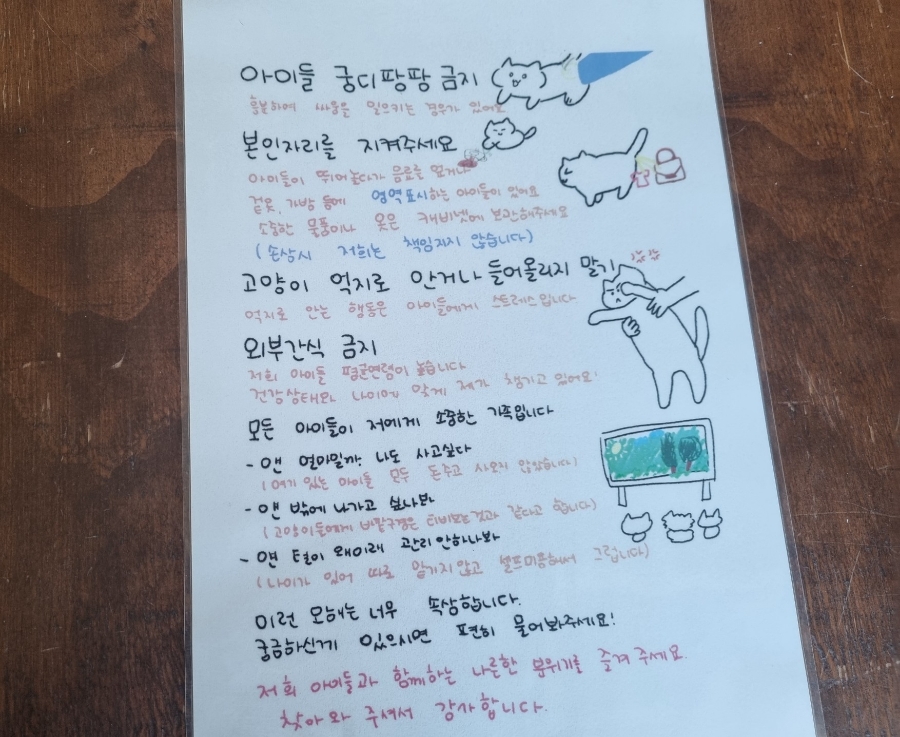 아이들 궁디팡팡 금지
흥분하여 싸움을 일으키는 경우가 있어요
본인자리를 지켜주세요
아이들이 뛰어놀다가 음료를
겉옷, 가방 등에 영역표시하는 아이들이 있어요
소중한 물품이나 옷은 캐비넷에 보관해주세요
(손상시 저희는 책임지지 않습니다)
고양이 억지로 안거나 들어올리지 말기
억지로 안는 행동은 아이들에게 스트레스입니다
외부간식 금지
저희 아이들 평균연령이 높습니다
건강상태와 나이에 맞게 제가 챙기고 있어요!
모든 아이들이 저에게 소중한 가족입니다
- 앤 얼마일까, 나도 사고싶다
(여기 있는 아이들 모두 돈주고 사오지 않았습니다)
- 앤 밖에 나가고 싶나봐
(고양이들에게 바깥구경은 티비보는것과 같다고 합니다)
- 앤 털이 왜이래 관리안하나봐
(나이가 있어 따로 알기지않고 셀프미용해서 그럽니다)
이런 오해는 너무 속상합니다.
궁금하신게 있으시면 편히 물어봐주세요!
저희 아이들과 함께하는 나른한 분위기를 즐겨주세요.
찾아와 주셔서 감사합니다.